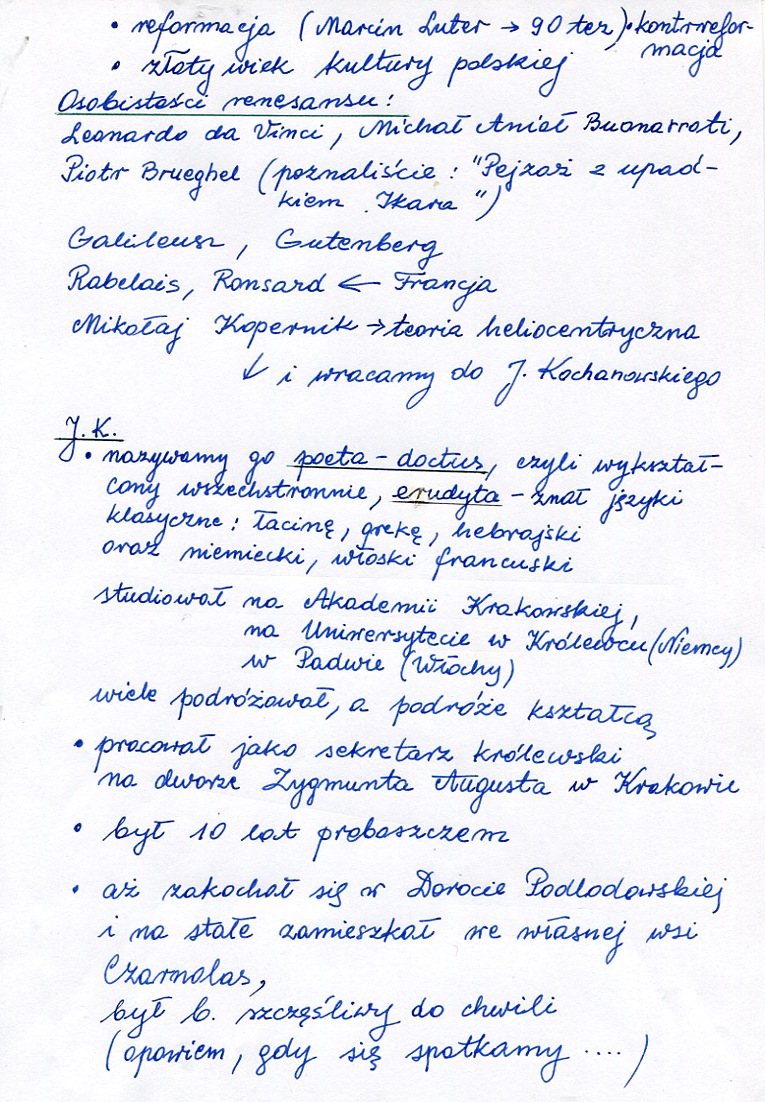 • reformacja (Marcin Luter → 90 tez) • kontrrefor-
macja
• złoty wiek kultury polskiej
Osobistości renesansu:
Leonardo da Vinci, Michał Anioł Buonarroti,
Piotr Brueghel (poznaliście: "Pejzaż z upad-
kiem Ikara")
Galileusz, Gutenberg
Rabelais, Ronsard ← Francja
Mikołaj Kopernik → teoria heliocentryczna
↓ i wracamy do J. Kochanowskiego
J. K.
• nazywamy go poeta-doctus, czyli wykształ-
cony wszechstronnie, erudyta - znał języki
klasyczne: łacinę, grekę, hebrajski
oraz niemiecki, włoski francuski
studiował na Akademii Krakowskiej,
na Uniwersytecie w Królewcu (Niemcy)
w Padwie (Włochy)
wiele podróżował, a podróże kształcą
• pracował jako sekretarz królewski
na dworze Zygmunta Augusta w Krakowie
• był 10 lat proboszczem
• aż zakochał się w Dorocie Podlodowskiej
i na stałe zamieszkał we własnej wsi
Czarnolas,
był b. szczęśliwy do chwili
(opowiem, gdy się spotkamy ....)